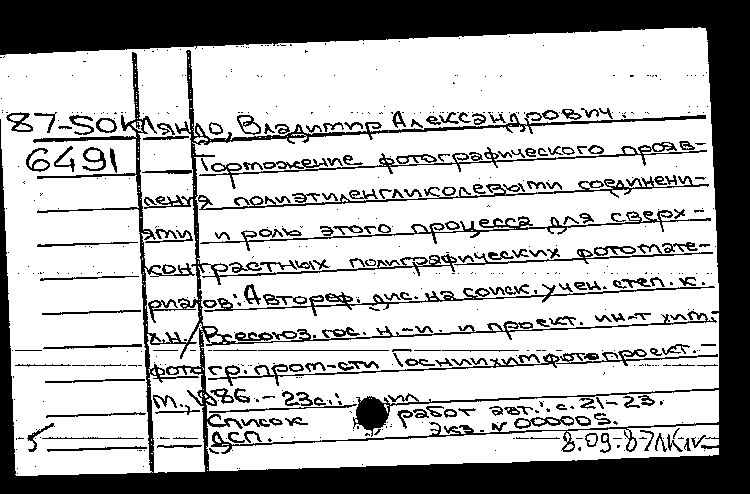 87-50К Ляндо, Владимир Александрович.
6491 Торможение фотографического прояв-
ления полиэтиленгликолевыми соединени-
ями и роль этого процесса для сверх-
контрастных полиграфических фотомате-
риалов: Автореф. дис. на соиск. учен. степ. к.
х.н./ Всесоюз. гос. н.-и. и проект. ин-т хим.-
фотогр. пром-сти Госниихимфотопроект. -
М., 1986. - 23с.: ил.
Список работ авт.: с. 21-23.
ДСП. Экз. N 000005.
5 8.09.87